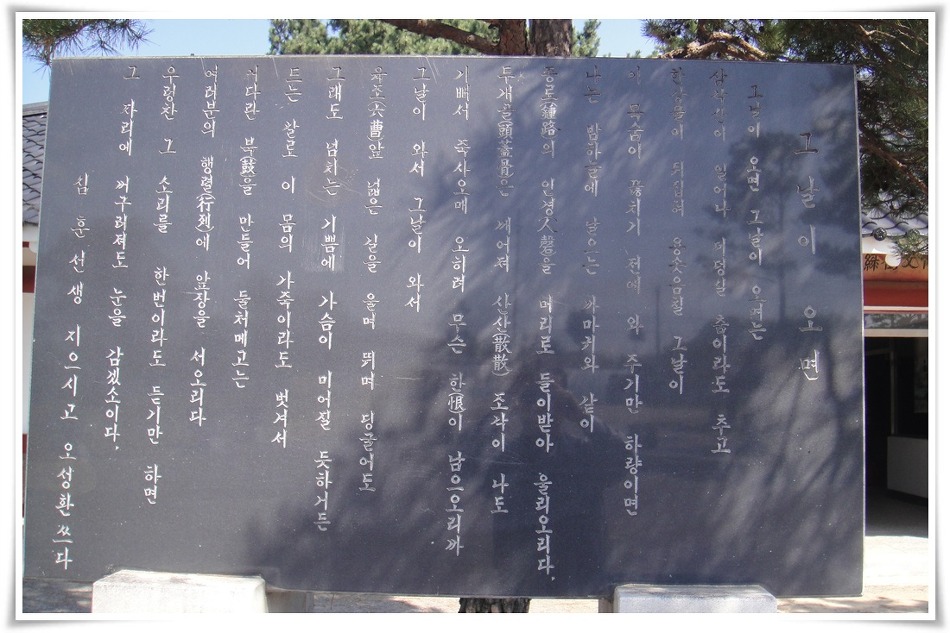 그날이 오면
그날이 오면 그날이 오며는
삼각산이 일어나 더덩실 춤이라도 추고
한강물이 뒤집혀 용솟음칠 그날이
이 목숨이 끊치기 전에 와 주기만 하량이면
나는 밤하늘에 날으는 까마귀와 같이
종로(鍾路)의 인경(人磬)을 머리로 들이받아 울리오리다.
두개골(頭蓋骨)은 깨어져 산산(散散) 조각이 나도
기뻐서 죽사오매 오히려 무슨 한(恨)이 남으오리까
그날이 와서 그날이 와서
육조(六曹)앞 넓은 길을 울며 뛰며 딩굴어도
그래도 넘치는 기쁨에 가슴이 미어질 듯하거든
드는 칼로 이 몸의 가죽이라도 벗겨서
커다란 북(鼓)을 만들어 둘쳐메고는
여러분의 행렬(行列)에 앞장을 서오리다
우렁찬 그 소리를 한번이라도 듣기만 하면
그 자리에 꺼구러져도 눈을 감겠소이다.
심훈선생 지으시고 오성환 쓰다